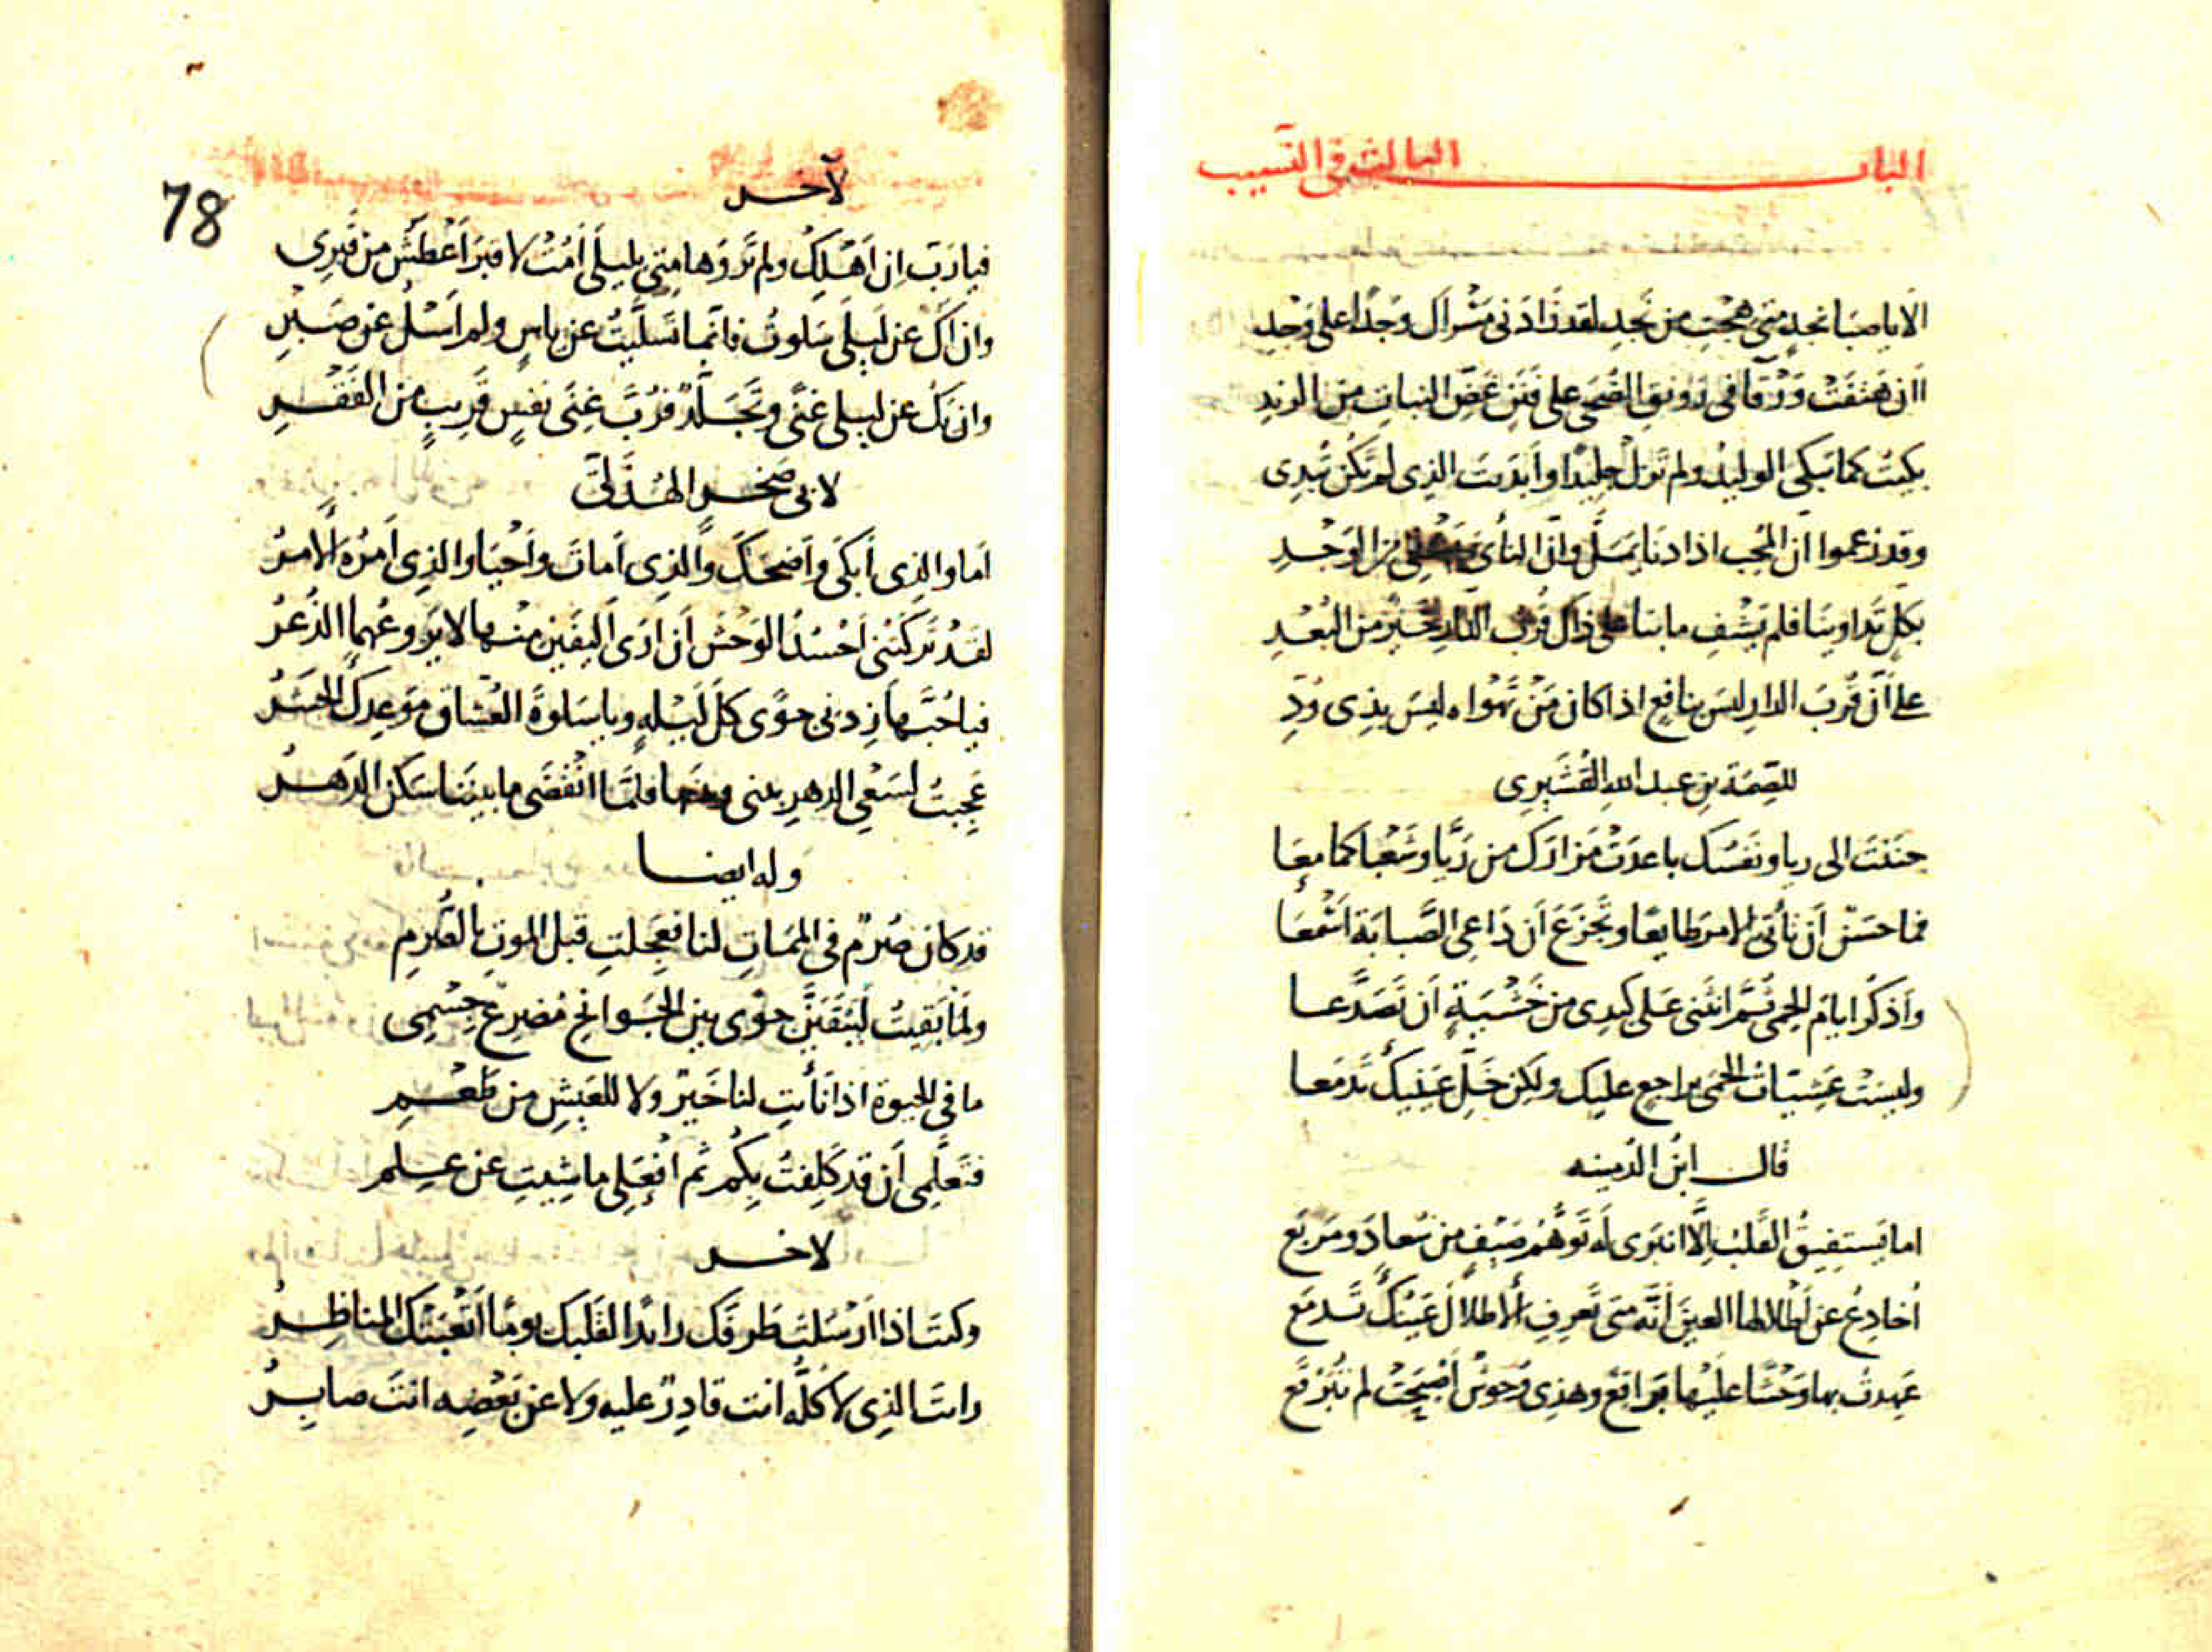 الباب الثالث في النسيب
الا يا صبا نجد متى هجت من نجد لقد زادني مسراك وجدا على وجد
اان هتفت ورقا في رونق الضحى على فنن غض النبات من الرند
بكيت كما يبكي الوليد ولم تزل جليدا وابديت الذي لم تكن تبدي
وقد زعموا ان المحب اذا دنا يمل وان الناي يشفي من الوجد
بكل تداوينا فلم يشف ما بنا على ذاك قرب الدار خير من البعد
على ان قرب الدار ليس بنافع اذا كان من تهواه ليس بذي ود
للصمة بن عبد الله القشيري
حننت الى ريا ونفسك باعدت مزارك من ريا وشعباكما معا
فما حسن ان تاتي الامر طايعا وتجزع ان داعي الصبابة اسمعا
واذكر ايام الحمى ثم انثني على كبدي من خشية ان تصدعا
وليست عشيات الحمى براجع عليك ولكن خل عينيك تدمعا
قال ابن الدمينه
اما يستفيق القلب الا انبرى له توهم صيف من سعاد ومربع
اخادع عن اطلالها العين انه متى تعرف الاطلال عينك تدمع
عهدت بها وحشا عليها براقع وهذي وحوش اصبحت لم تبرقع
78
لآخر
فيا رب ان اهلك ولم ترو هامتي بليلى امت لا قبر اعطش من قبري
وان اك عن ليلى سلوت فانما تسليت عن ياس ولم اسل عن صبر
وان يك عن ليلى غنى وتجلد فرب غنى نفس قريب من الفقر
لابي صخر الهذلي
اما والذي ابكى واضحك والذي امات واحيا والذي امره الامر
لقد تركتني احسد الوحش ان ارى اليفين منها لا يروعهما الذعر
فيا حبها زدني جوى كل ليلة ويا سلوة العشاق موعدك الحشر
عجبت لسعي الدهر بيني وبينها فلما انقضى ما بيننا سكن الدهر
وله ايضا
قد كان صرم في الممات لنا فعجلت قبل الموت بالصرم
ولما بقيت ليبقين جوى بين الجوانح مضرع جسمي
ما في الحيوة اذا نأيت لنا خير ولا للعيش من طعم
فتعلمي ان قد كلفت بكم ثم افعلي ما شيت عن علم
لاخر
وكنت اذا ارسلت طرفك رائدا لقلبك يوما اتعبتك المناظر
رايت الذي لا كله انت قادر عليه ولا عن بعضه انت صابر